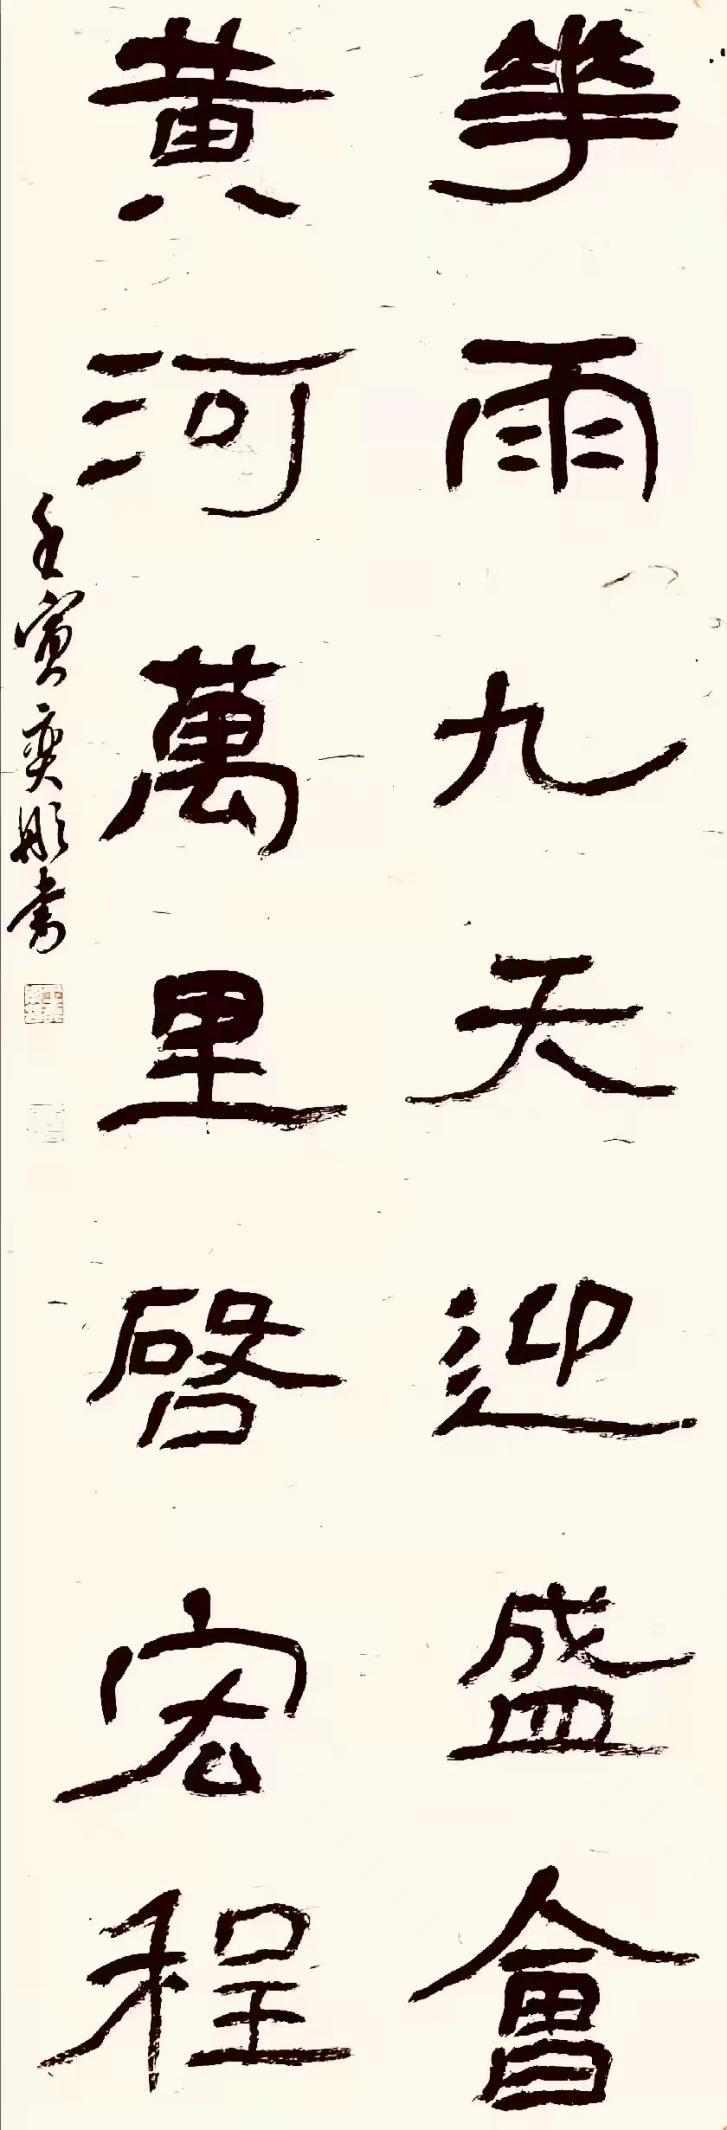 華雨九天迎盛會
黄河萬里啓宏程
壬寅奕彤書